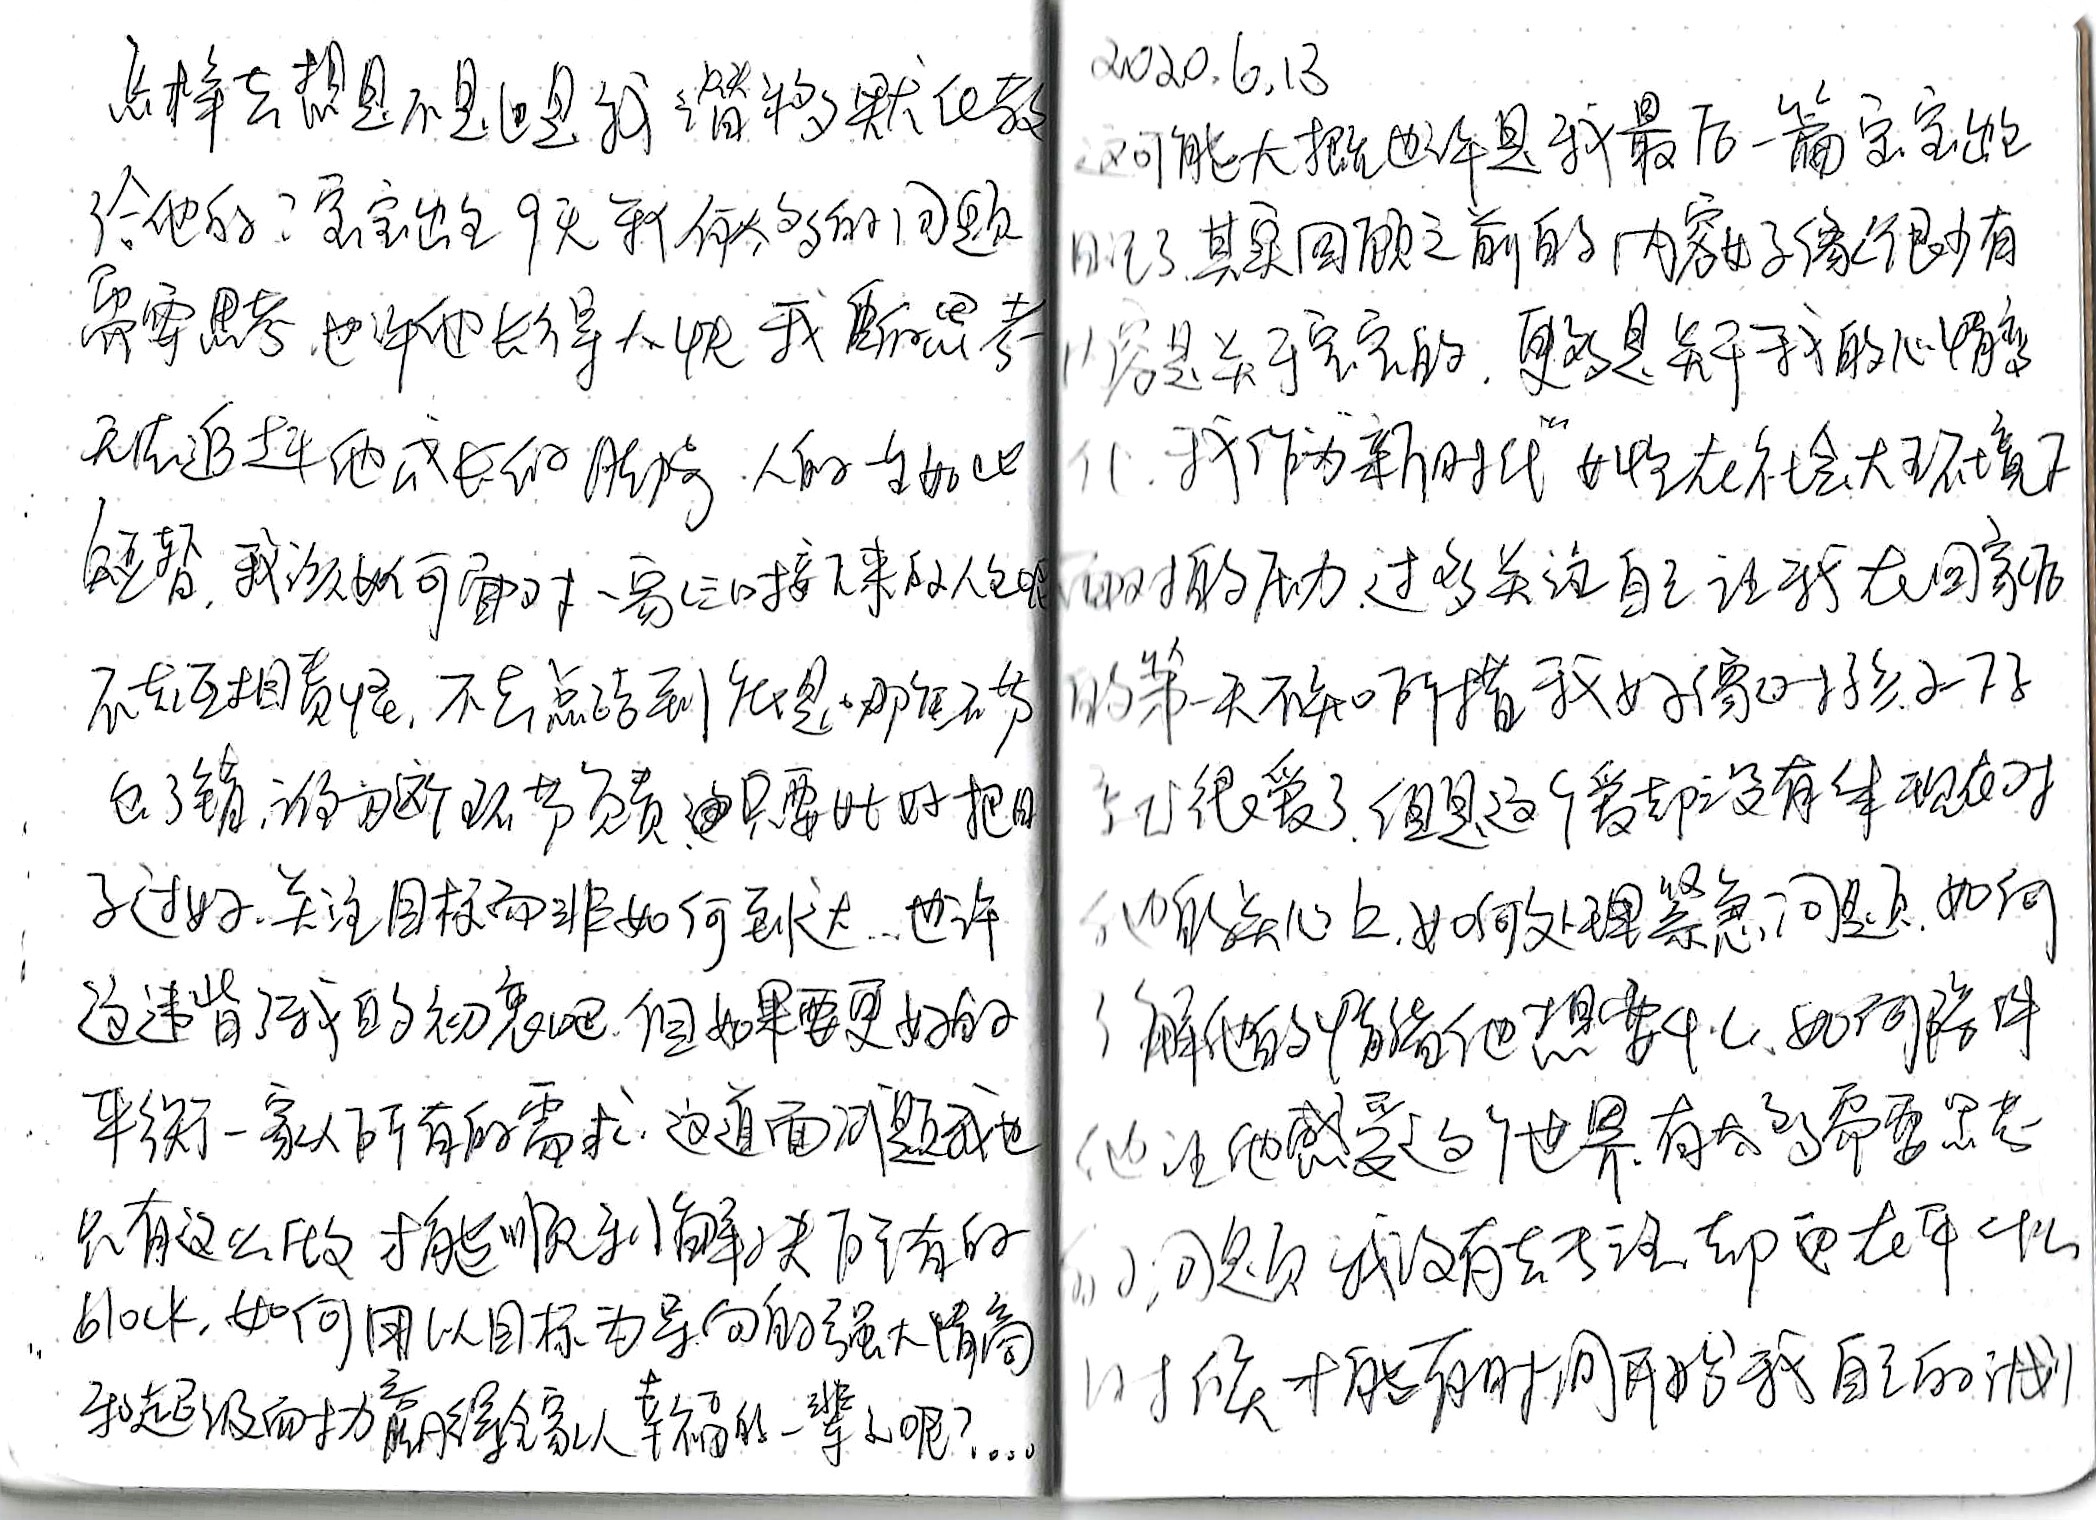 怎样去想是不是也是我潜移默化教
给他的？宝宝出生9天我有太多的问题
需要思考.也许他长得太快我的思考
无法追赶他成长的脚步.人的一生如此
短暂,我该如何面对一家三口接下来的人生呢
不去互相责怪,不去总结到底是哪个环节
出了错,谁为这个环节负责,只要好好把日
子过好.关注目标而非如何到达...也许
这违背了我的初衷吧.但如果要更好的
平衡一家人所有的需求.这道面试题我也
只有这么做才能顺利解决所有的
block.如何用以目标为导向的强大情商
和超级耐力赢得全家人幸福的一辈子呢?....
2020.6.13
这可能大概也许是我最后一篇宝宝出生
日记了.其实回顾之前的内容好像很少有
内容是关于宝宝的.更多是关于我的心情变
化.我作为“新时代”女性在社会大环境下
面对的压力.过多关注自己让我在回家后
的第一天不知所措我好像对孩子一下子
就很爱了.但是这个爱却没有体现在对
他的关心上.如何处理紧急问题.如何
了解他的情绪他想要什么.如何陪伴
他让他感受这个世界.有太多需要思考
的问题我没有去关注却更在乎什么
时候才能有时间开始我自己的计划